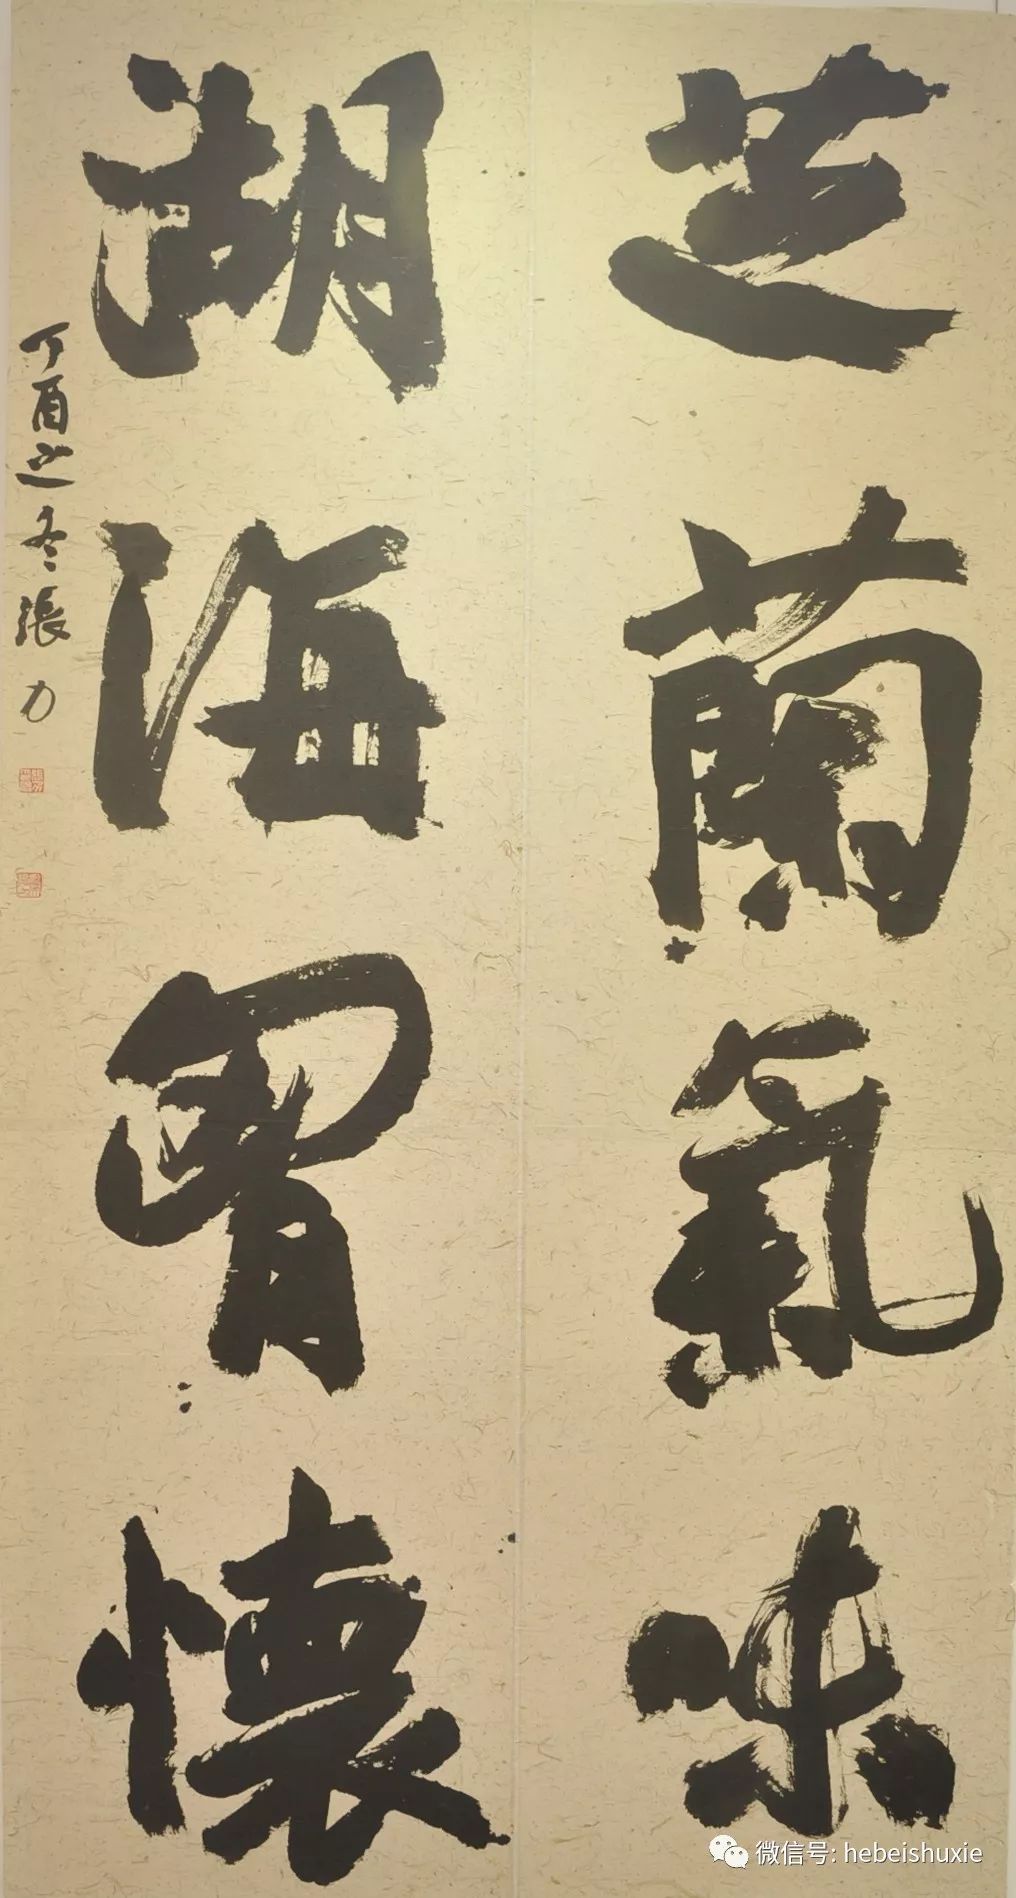 芝蘭氣味
湖海胷懷
丁酉之冬張力
微信号: hebeishuxie